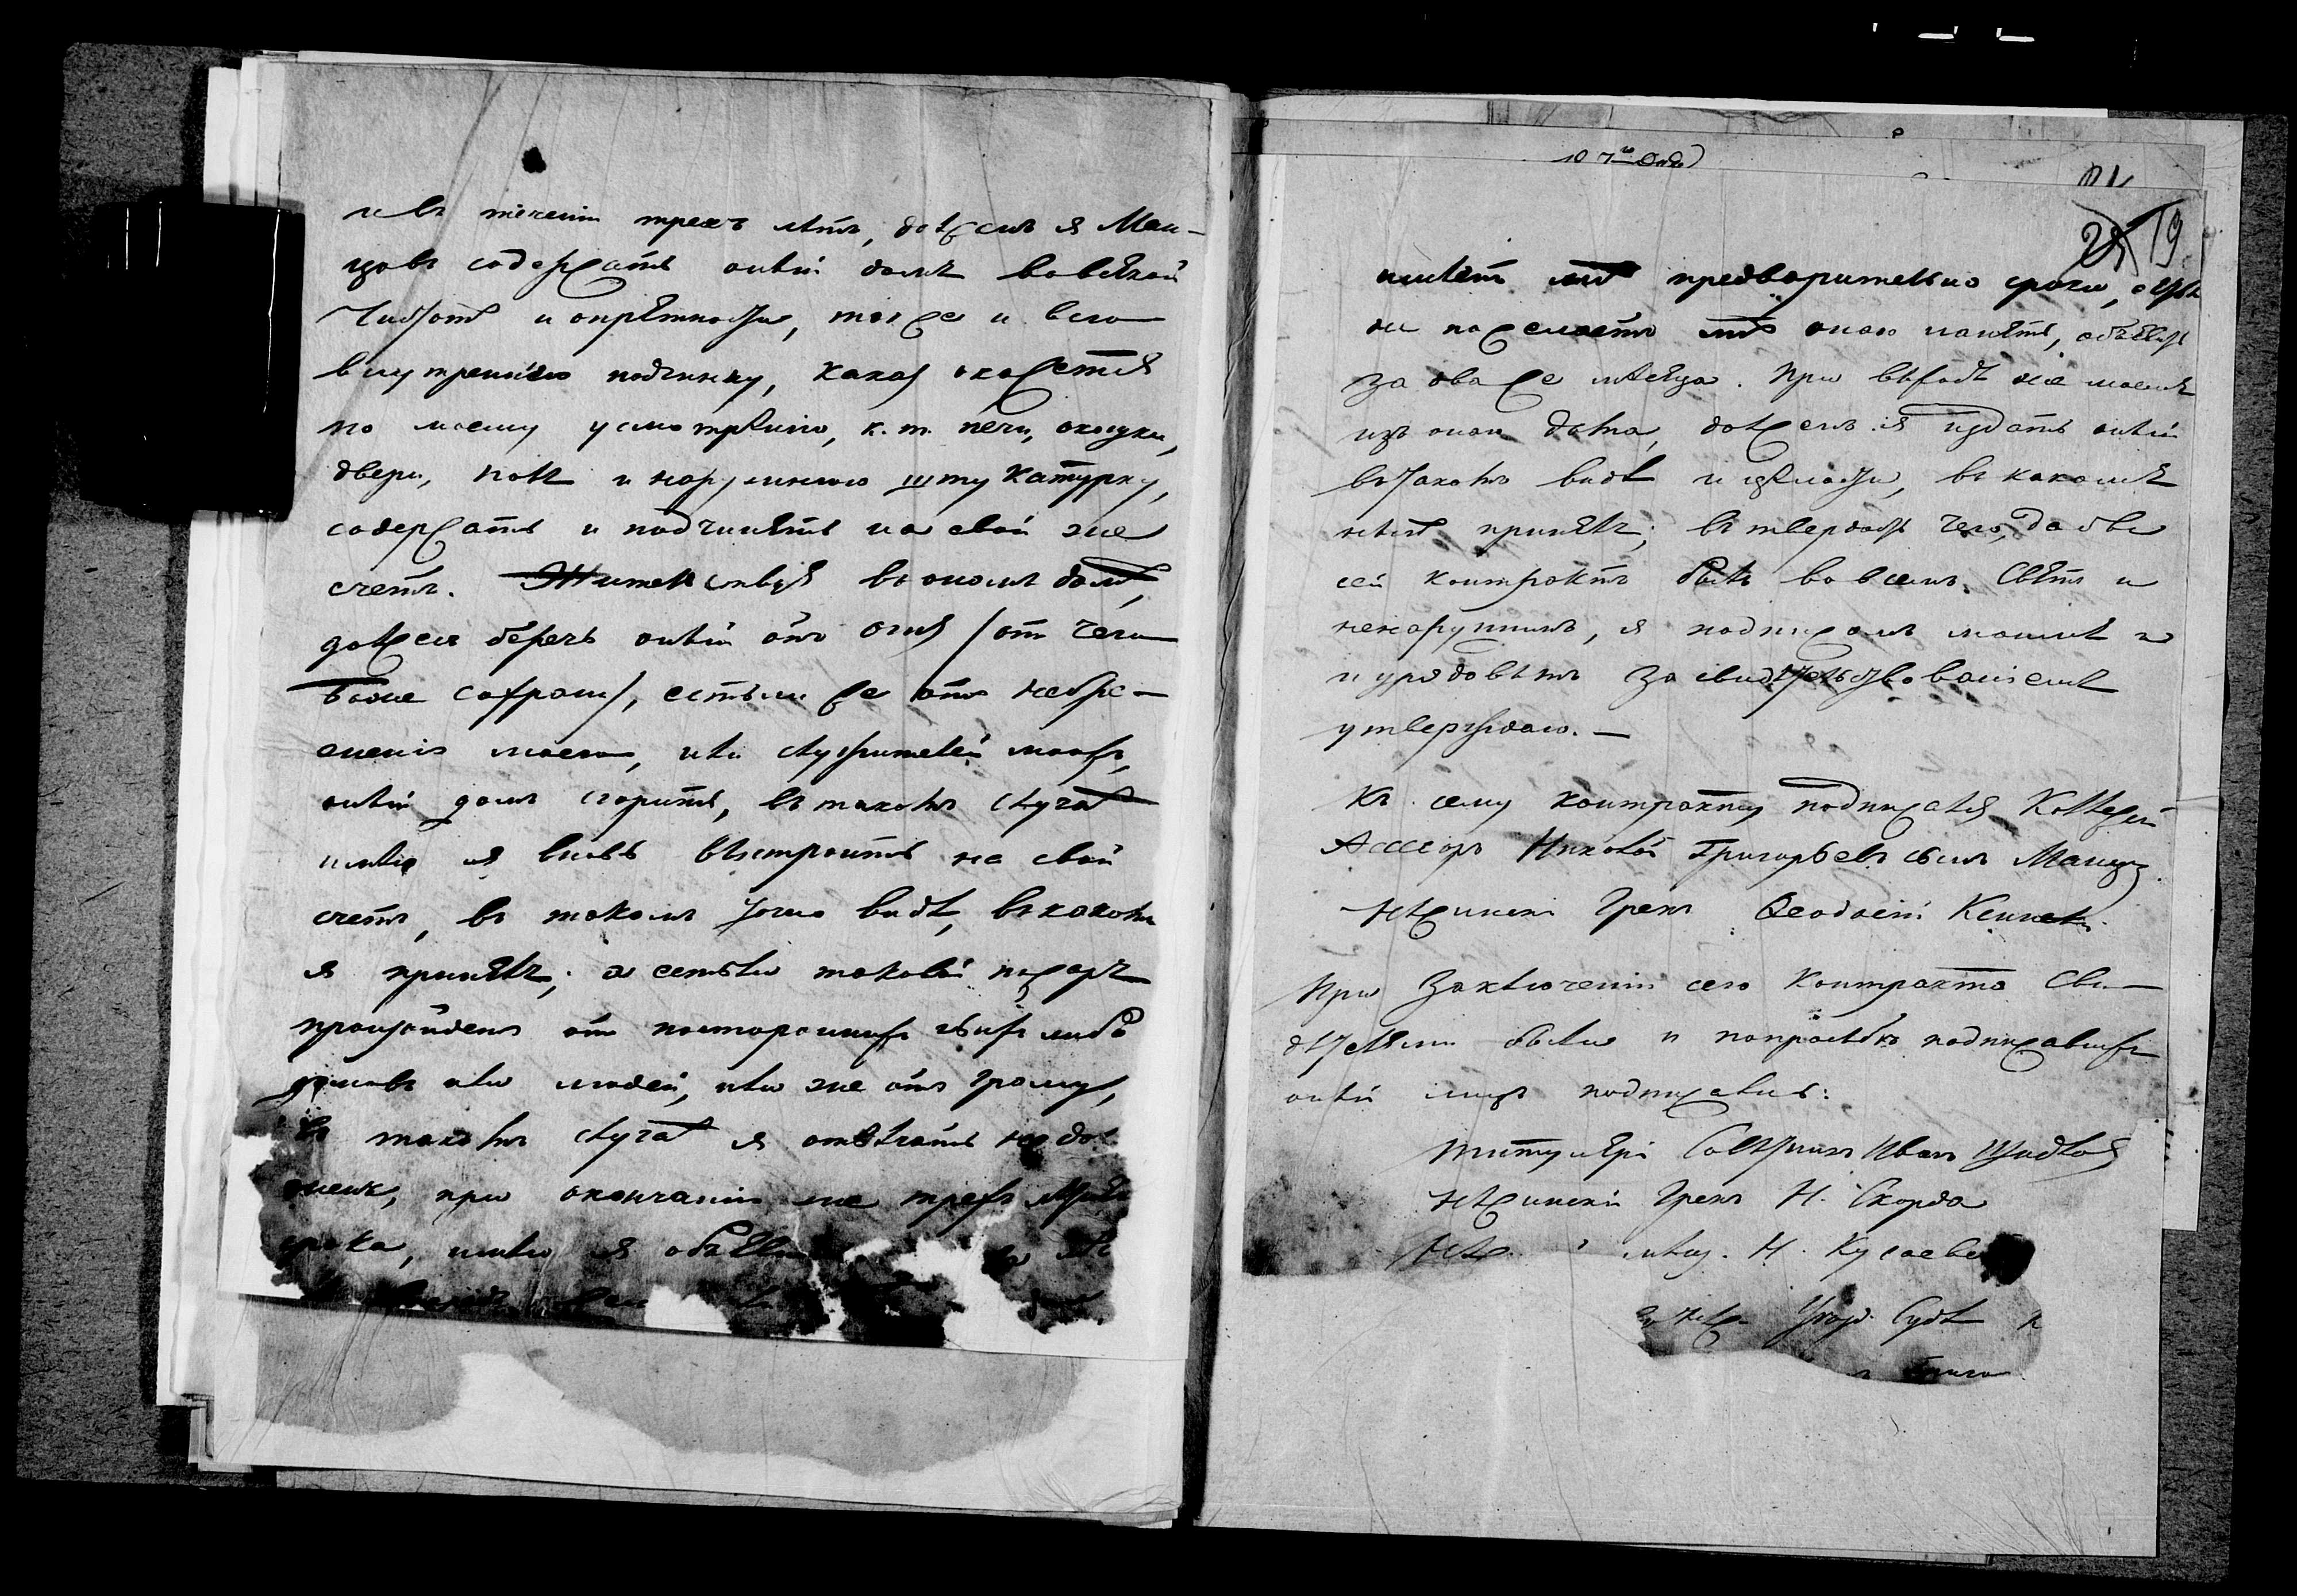 и въ теченіи трехъ лѣтъ, долженъ я Ман-
цовъ содержать оный домъ во всякой
чистотѣ и опрятности, тоже и всю
внутреннюю починку, какая окажется
по моему усмотрѣнію, к. т. печи, окошки,
двери, полъ и наружнюю штукатурку,
содержать и починять на свой же
счетъ. Жительствуя въ ономъ домѣ,
долженъ беречь оный отъ огня /отъ чего
Боже сохрани/, естьли же отъ небре-
женія моего, или служителей моихъ,
оный домъ сгоритъ, въ такомъ случаѣ
имѣю я вновь выстроить на свой
счетъ, въ такомъ точно видѣ, въ какомъ
я принялъ; а естьли таковый пожаръ
произойдетъ отъ постороннихъ чьихъ либо
домовъ или людей, или же отъ грому,
въ такомъ случаѣ я отвѣчать не дол
женъ, при окончаніи же трехъ
срока, имѣю я
10 7го
19
имѣетъ мнѣ предворительно срока, естьли
не пожелаетъ мнѣ оного нанять, объявить
за два же мѣсяца. При выходѣ же моемъ
изъ оного дома, долженъ я здать оный
въ такомъ видѣ и цѣлости, въ какомъ
принялъ; въ твердость чего, дабы
сей контрактъ былъ во всемъ святъ и
ненарушимъ, я подписомъ моимъ и
и урядовымъ засвидѣтельствованіемъ
утверждаю. —
Къ сему контракту подписался Коллежскій
Ассесоръ Николай Григорьевъ сынъ Манцовъ
Нѣжинскій Грекъ Ѳеодосій
При заключеніи сего Контракта Сви-
дѣтелями были и по прозьбѣ подписавшихъ
оный лицъ подписались:
Титулярній Совѣтникъ Иванъ
Нѣжинскій Грекъ Н. Скорда
Нѣж. Н.
Нѣж. Суд